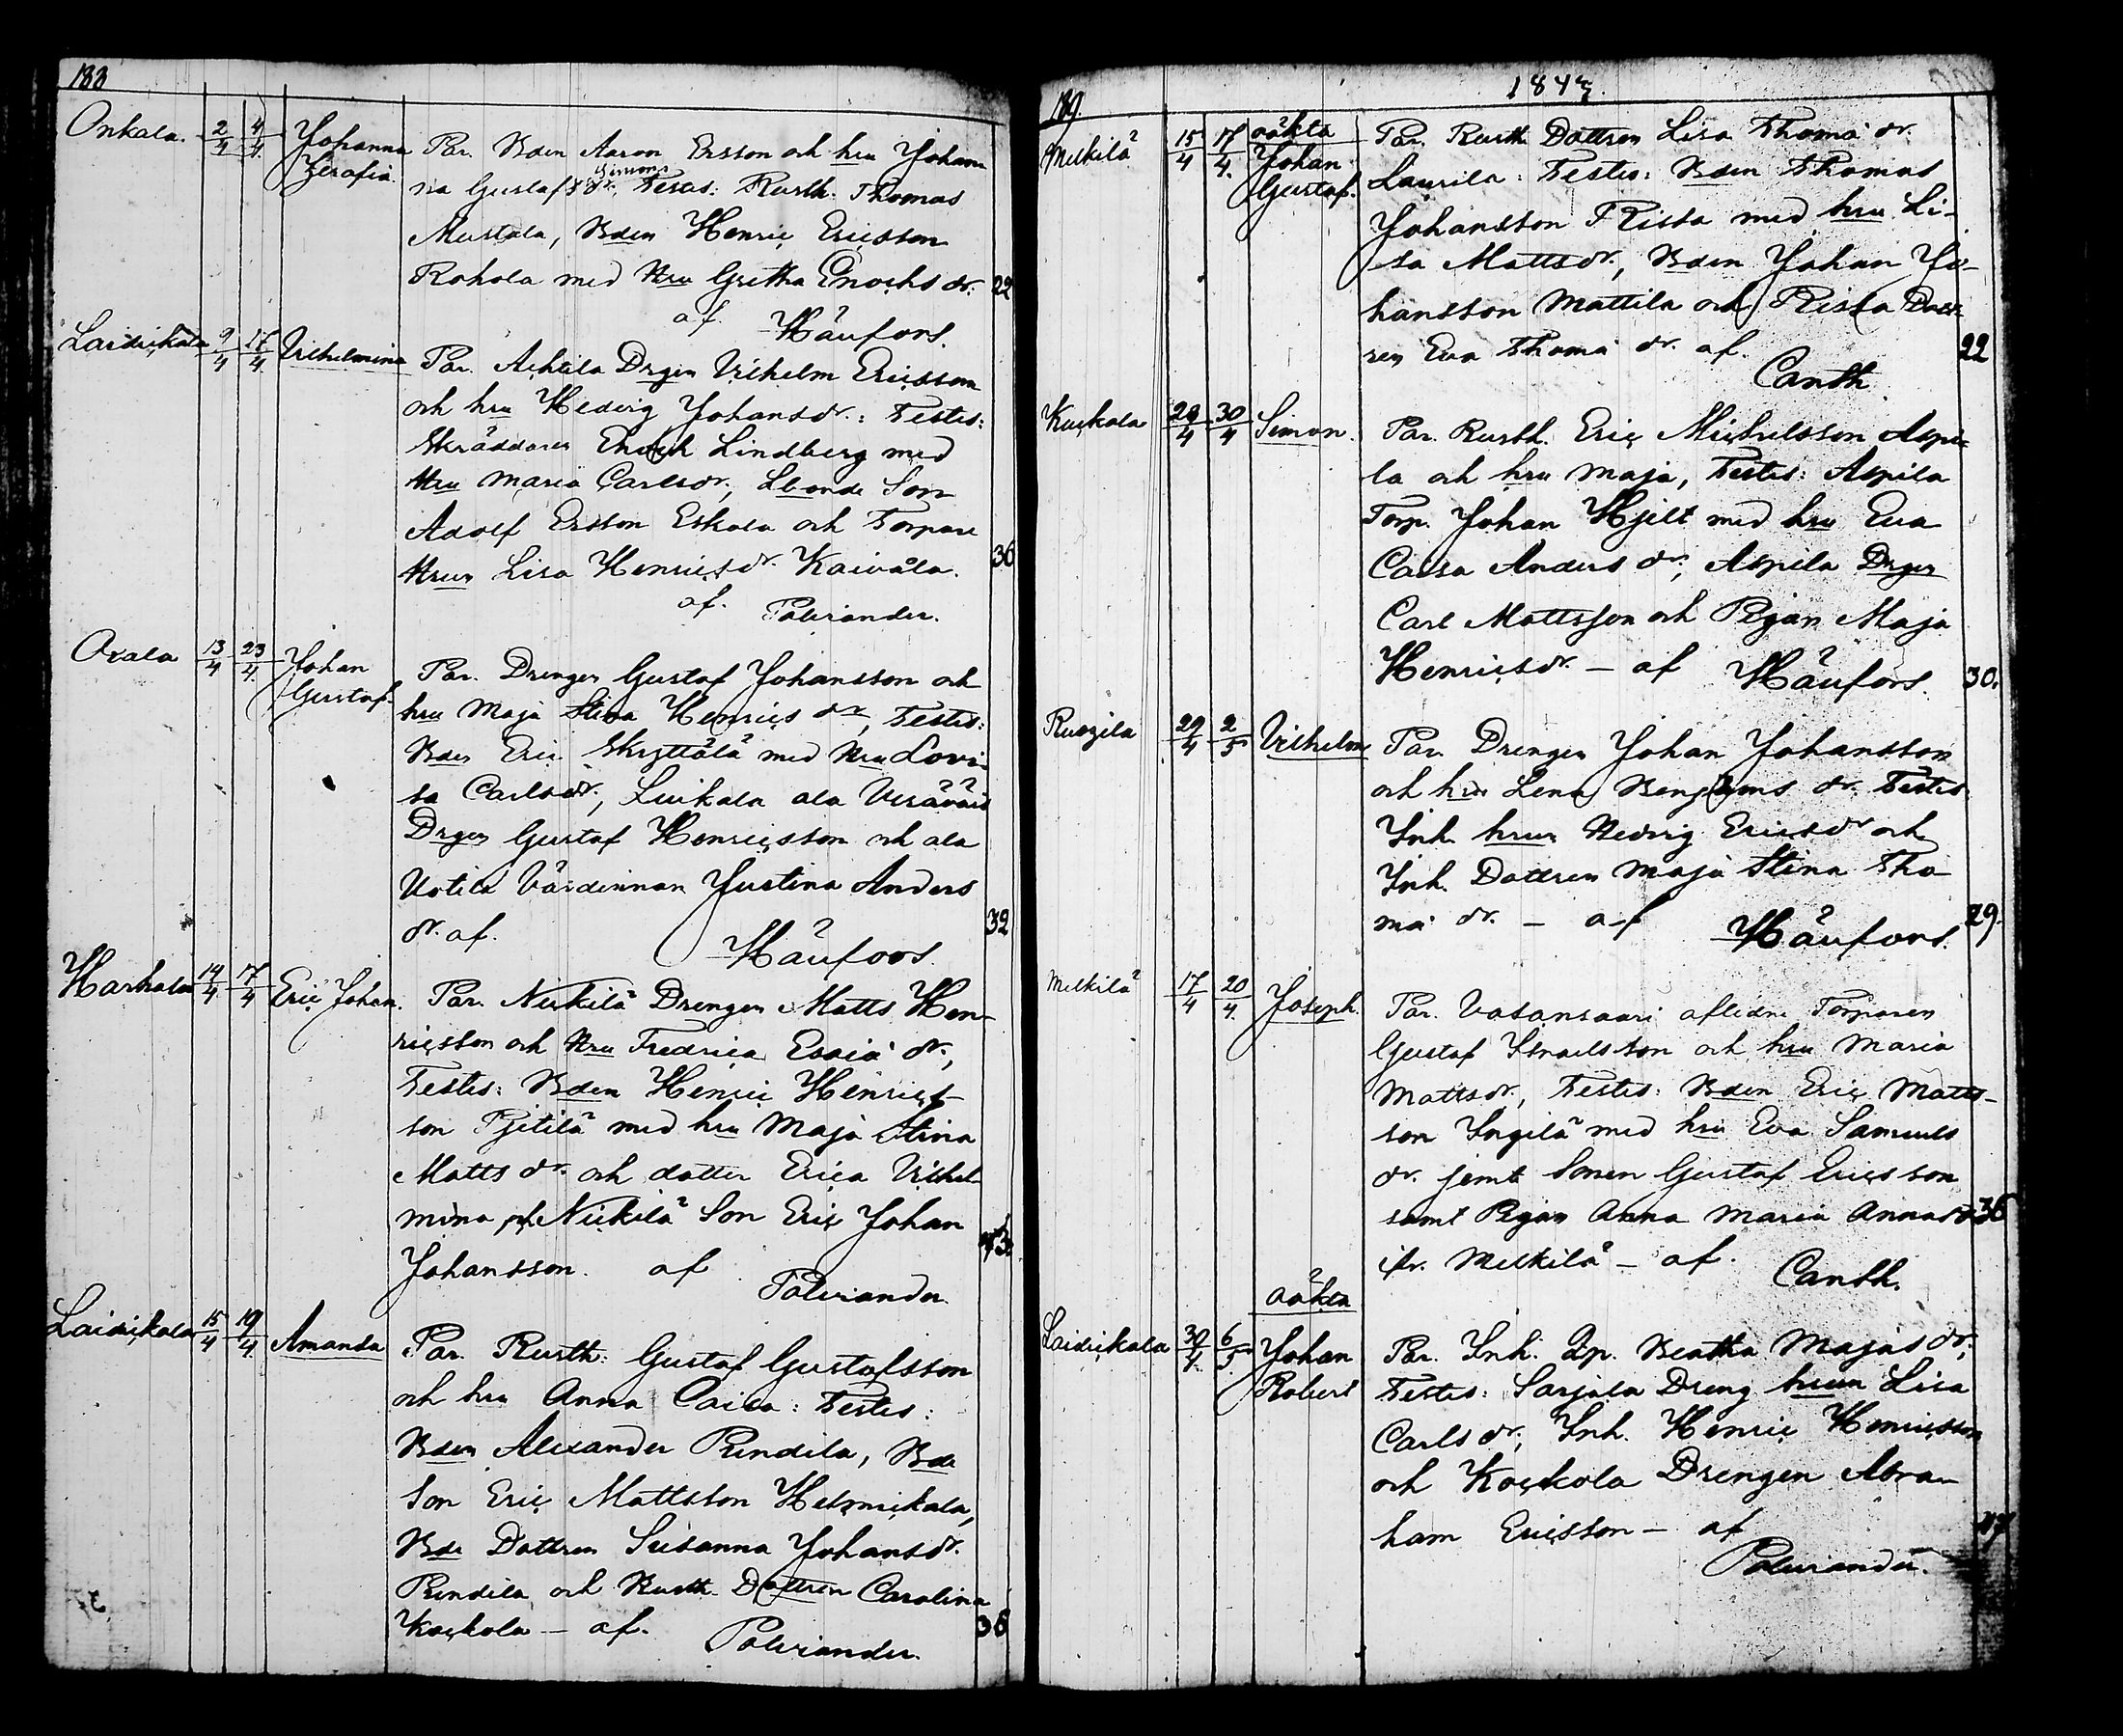 188
Onkala. 2/4 4/4 Johanna Par. Bden Aaron Ersson och hru Johan
Zerafia. na Gustafs dr. Testes: Rusth. Thomas
Simons
Mustala, Bden Henric Ericsson
Rohola med Hru Gretha Enochs dr. 22
af. Häufors.
Laidickala 9/4 17/4 Vilhelmina Par. Achtila Drgen Vilhelm Ericsson
och hru Hedvig Johansdr.: Testes:
Skräddaren Enoch Lindberg med
Hru Maria Carlsdr, Lbonde Son
Adolf Ersson Eskola och Torpare
Hrun Lisa Henricsdr. Kaivola. 36
af. Polviander.
Oxala 13/4 23/4 Johan Par. Drengen Gustaf Johansson och
Gustaf. hru Maja Stina Henrics dr, Testes:
Bden Eric Skyttälä med Hru Lovi-
sa Carlsdr, Luikala ala
Drgen Gustaf Henricsson och ala
Uotila Värdinnan Justina Anders
dr. af. Häufors. 32
Harhala 14/4 17/4 Eric Johan. Par. Nickilä Drengen Matts Hen-
ricsson och Hru Fredrica Esaiæ dr,
Testes: Bden Henric Henrics-
son Pjetilä med hru Maja Stina
Matts dr. och dotter Erica Vilhel-
mina, Nickilä Son Eric Johan
Johansson. af Polviander.
Laidickala 15/4 19/4 Amanda Par. Rusth: Gustaf Gustafsson
och hru Anna Caisa: Testes:
Bden Alexander Rendila, Bde
Son Eric Mattsson
Bde Dottren Susanna Johansdr.
Rendila och Rusth. Dottren Carolina
Kockola — af. Polviander. 36
189. 1843.
Melkilä 15/4 17/4 oäkta Par. Rusth Dottren Lisa Thomæ dr.
Johan Laurila: Testes: Bden Thomas
Gustaf. Johansson Rista med hru Li-
sa Mattsdr, Bden Johan Jo-
hansson Mattila och Rista Dott-
ren Eva Thomæ dr. af. 22
Canth
Kuckola 28/4 30/4 Simon. Par. Rusth. Eric Michelsson Aspi-
la och hru Maja, Testes: Aspila
Torp. Johan Hjelt med hru Eva
Caisa Anders dr, Aspila Drgen
Carl Mattsson och Pigan Maja
Henricsdr. — af Häufors. 30.
29/4 2/5 Vilhelm Par. Drengen Johan Johansson
och hru Lena Benjamins dr. Testes
Inh. hrun Hedvig Ericsdr och
Inh. Dottren Maja Stina Tho-
mæ dr. — af Häufors. 29.
Melkilä 17/4 20/4 Joseph. Par. Vatansaari aflidne Torparen
Gustaf Israelsson och hru Maria
Mattsdr, Testes: Bden Eric Matts-
son Ingilä med hru Eva Samuels
dr. jemte Sonen Gustaf Ericsson
samt Pigan Anna Maria Annas dr 36
ifr. Melkilä — af. Canth.
oäkta
Laidickala 30/4 6/5 Johan Par. Inh. Qp. Beatha Majasdr,
Robert Testes: Sarjala Dreng hrun Lisa
Carls dr, Inh. Henric Henricsson
och Kockola Drengen Abra-
ham Ericsson — af
Polviander.